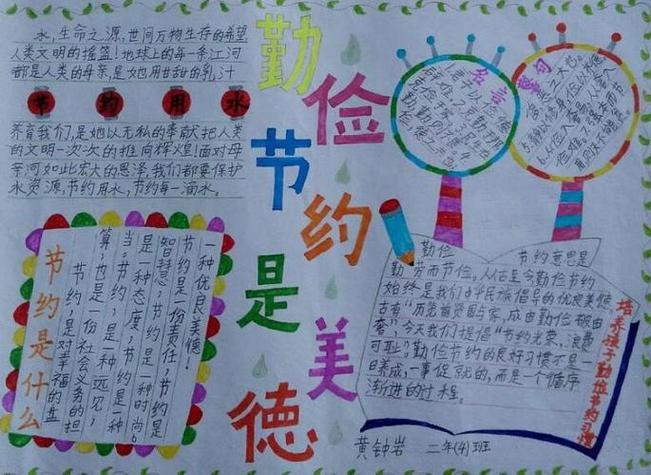 水,生命之源,世间万物生存的希望
人类文明的摇篮!地球上的每一条江河
都是人类的母亲,是她用甘甜的乳汁
节约用水
养育我们,是她以无私的奉献把人类
的文明一次次的推向辉煌!面对母
亲河如此宏大的恩泽,我们都要保护
水资源,节约用水,节约每一滴水。
勤俭节约是美德
名言
警句
节约是什么
节约,是对幸福的盘
算,也是一份社会义务的担
当。节约,是一种远见,
是一种态度,节约是一种
智慧,节约是一种时尚。
节约是一份责任,节约是
一种优良美德!
勤俭 节约意思是
勤劳而节俭,从古至今勤俭节约
始终是我们中华民族倡导的优良美德,
古有“历览前贤国与家,成由勤俭破由
奢”,今天我们提倡“节约光荣,浪费
可耻,”勤俭节约的良好习惯不是一
日养成,一事促就的,而是一个循序
渐进的过程。
培养孩子勤俭节约习惯
黄钟岩 二年(4)班